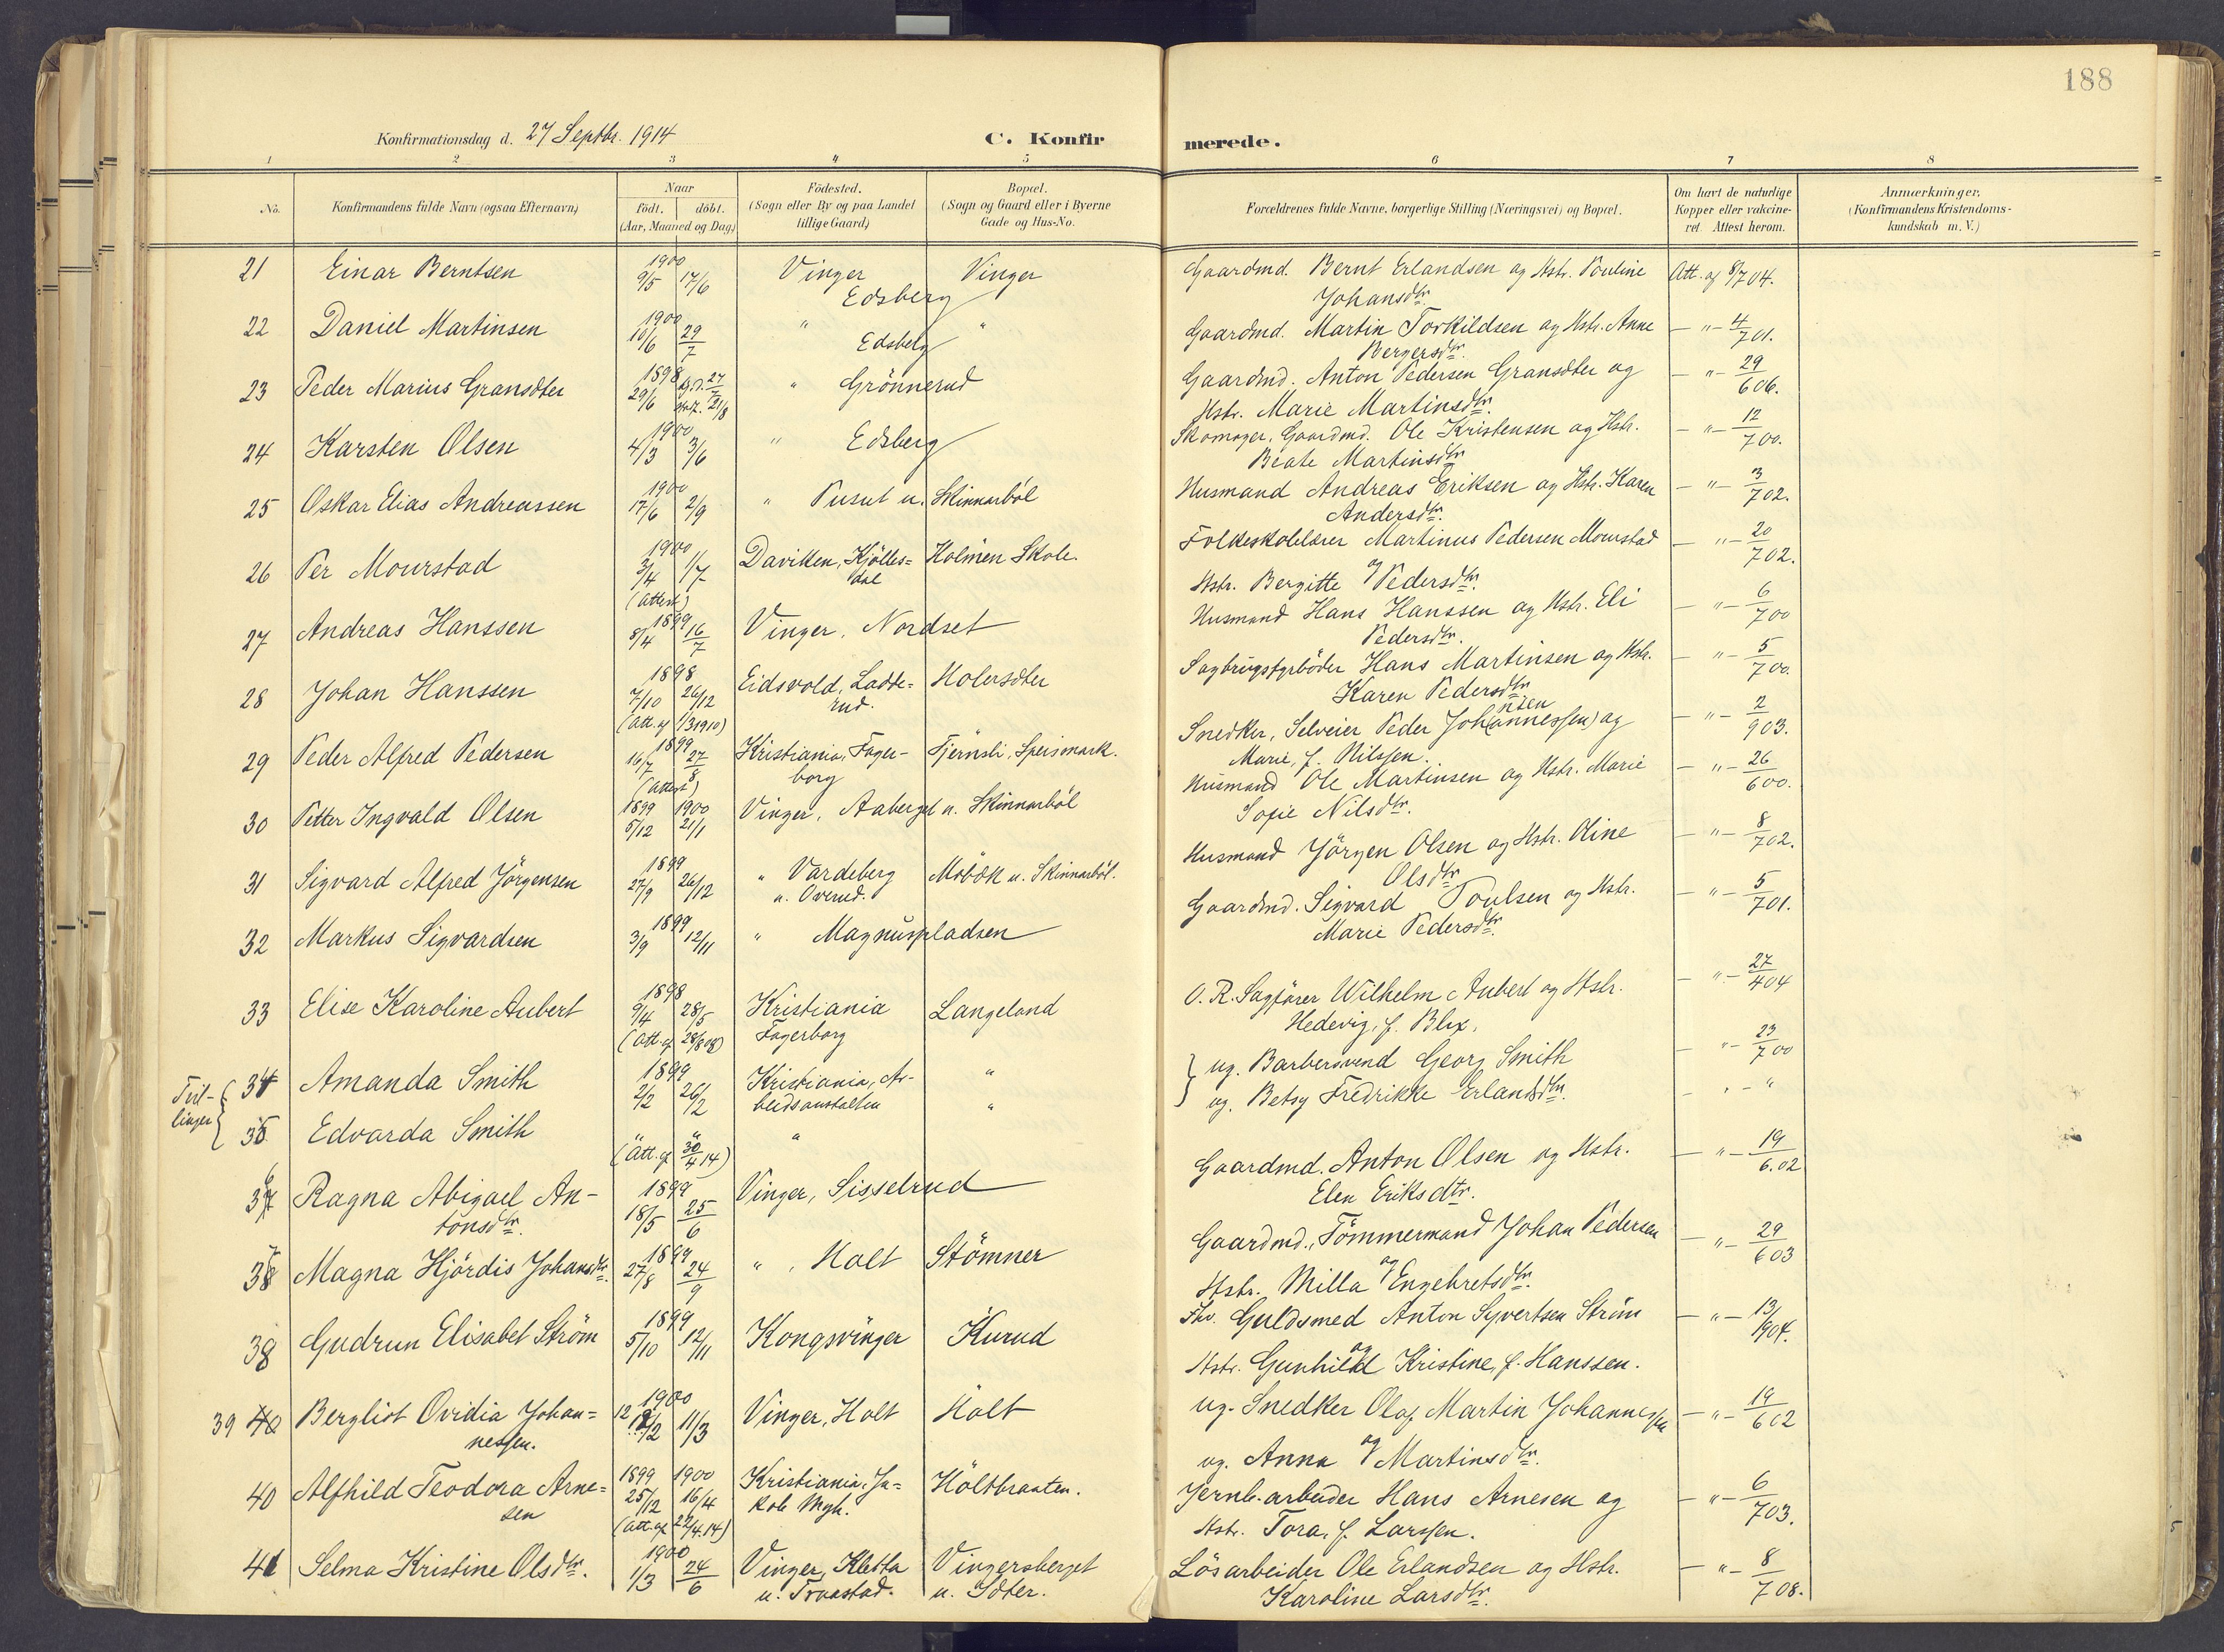 188
Konfirmationsdag d. 27 Septbr. 1914
C. Konfirmerede.
1 2 3 4 5 6 7 8
No.
Konfirmandens fulde Navn (ogsaa Efternavn)
Naar
født. døbt.
(Aar, Maaned og Dag)
Födested.
(Sogn eller By og paa Landet
tillige Gaard)
Bopæl.
(Sogn og Gaard eller i Byerne
Gade og Hus-No.
Forældrenes fulde Navne, borgerlige Stilling (Næringsvei) og Bopæl.
Om havt de naturlige
Kopper eller vakcine-
ret. Attest herom.
Anmærkninger.
(Konfirmandens Kristendoms-
kundskab m. V.)
21 Einar Berntsen 1900 9/5 17/6 Vinger Edsberg Vinger Gaardmd. Bernt Erlandsen og Hstr. Pouline Att. af 8/7 04.
Johansdtr.
22 Daniel Martinsen 1900 10/6 29/7 " Edsberg " Gaardmd. Martin Torkildsen og Hstr. Anne — " — 4/7 01.
Bergersdtr.
23 Peder Marius Gransdter 1898 29/6 21/8 " Grönnerud Gaardmd. Anton Pedersen Gransdter og — " — 29/6 06.
Hstr. Marie Martinsdtr.
24 Karsten Olsen 1900 4/3 3/6 " Edsberg Skomager, Gaardmd. Ole Kristensen og Hstr. — " — 12/7 00.
Beate Martinsdtr.
25 Oskar Elias Andreassen 1900 17/6 2/9 " Pusut u. Skinnarböl Husmand Andreas Eriksen og Hstr. Karen — " — 3/7 02.
Andersdtr.
26 Per Mourstad 1900 3/4 1/7 Daviken, Kjölles= Holmen Skole. Folkeskolelærer Martinus Pedersen Mourstad — " — 20/7 02.
(Attest) dal og Hstr. Bergitte Pedersdtr.
27 Andreas Hanssen 1899 8/4 16/7 Vinger, Nordset Husmand Hans Hanssen og Hstr. Eli — " — 6/7 00
Pedersdtr.
28 Johan Hanssen 1898 7/10 26/12 Eidsvold, Ladde= Holersdter Sagbrugsfyrböder Hans Martinsen og Hstr. — " — 5/7 00.
(Att. af 1/3 1910) rud. Karen Pedersdtr.
29 Peder Alfred Pedersen 1899 16/7 27/8 Kristiania, Fager- Tjernsli, Speismark. Snedker, Selveier Peder Joh(annessen) nsen og — " — 2/9 03.
(Attest) borg Marie, f. Nilssen.
30 Petter Ingvald Olsen 1899 5/12 1900 21/1 Vinger, Aaberget u. Skinnarböl Husmand Ole Martinsen og Hstr. Marie — " — 26/6 00.
Sofie Nilsdtr.
31 Sigvard Alfred Jörgensen 1899 27/9 26/12 " Vardeberg Möbæk u. Skinnarböl. Husmand Jörgen Olsen og Hstr. Oline — " — 8/7 02.
u. Overud. Olsdtr.
32 Markus Sigvardsen 1899 3/9 12/11 " Magnuspladsen Gaardmd. Sigvard Poulsen og Hstr. — " — 5/7 01.
Marie Pedersdtr.
33 Elise Karoline Aubert 1898 9/4 28/5 Kristiania Langeland O. R. Sagförer Wilhelm Aubert og Hstr. — " — 27/4 04
(Att. af 28/8 08) Fagerborg Hedevig, f. Blix.
Tvil-
linger
34 Amanda Smith 1899 2/2 26/2 Kristiania, Ar- " ug. Barbersvend Georg Smith — " — 23/7 00
beidsanstalten
35 Edvarda Smith " " " " ug. Betsy Fredrikke Erlandsdtr. — " — "
(Att. af 30/4 14)
36 Ragna Abigael An- 1899 18/5 25/6 Vinger, Sisselrud Gaardmd. Anton Olsen og Hstr. — " — 19/6 02
tonsdtr. Elen Eriksdtr.
37 Magna Hjördis Johansdtr. 1899 27/8 24/9 " , Holt Stömner Gaardmd., Tömmermand Johan Pedersen — " — 29/6 03
og Hstr. Milla Engebretsdtr.
38 Gudrun Elisabet Ström 1899 5/10 12/11 Kongsvinger Kurud Fhv. Guldsmed Anton Syvertsen Ström — " — 13/9 04.
og Hstr. Gunhild Kristine, f. Hanssen.
39 40 Bergliot Ovidia Johan= 1900 12/2 11/3 Vinger, Holt Holt ug. Snedker Olaf Martin Johannessen — " — 19/6 02
nessen. og ug. Anna Martinsdtr.
40 Alfhild Teodora Arne= 1899 25/12 1900 16/4 Kristiania, Ja- Holtbraaten. Jernb.arbeider Hans Arnesen og — " — 6/7 03.
sen (Att. af 22/4. 14) kob Mgh. Hstr. Tora, f. Larssen.
41 Selma Kristine Olsdtr. 1900 1/3 24/6 Vinger, Kletta Vingersberget Lösarbeider Ole Erlandsen og Hstr. — " — 8/7 08.
u. Traastad. u. Sdter. Karoline Larsdtr.